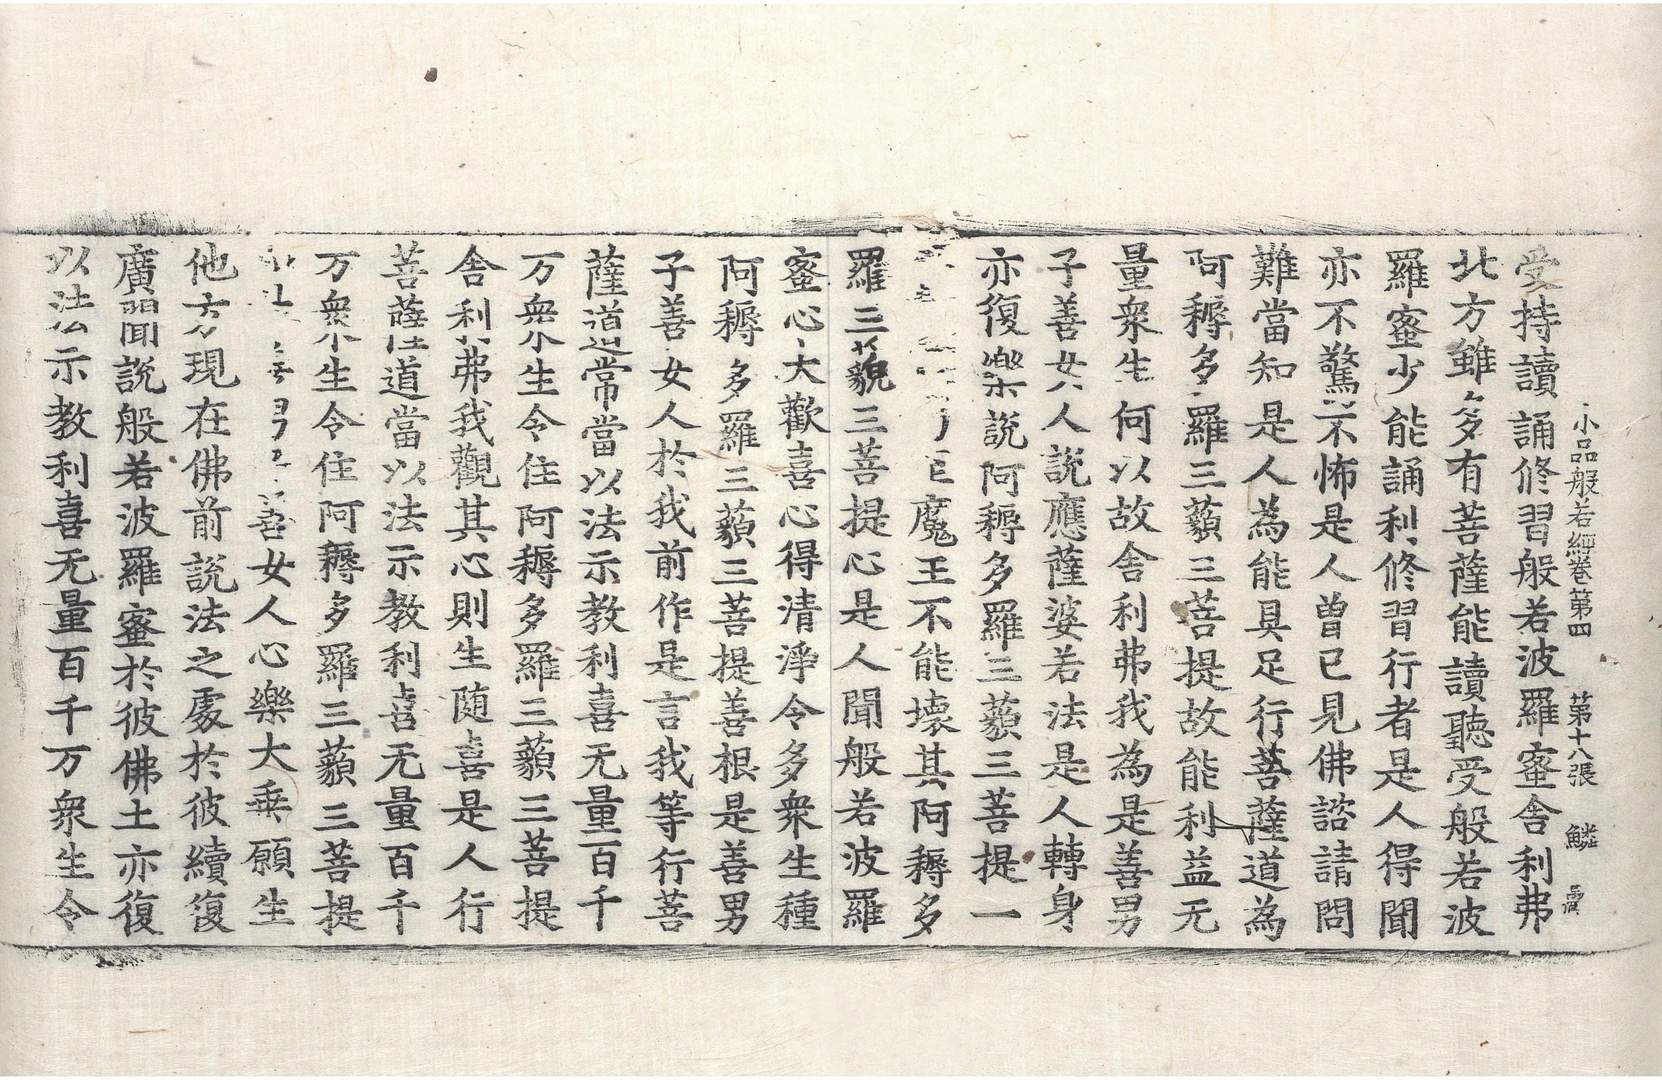 小品般若經卷第四 第十八張 鱗
受持讀誦修習般若波羅蜜舍利弗
北方雖多有菩薩能讀聽受般若波
羅蜜少能誦利修習行者是人得聞
亦不驚不怖是人曾已見佛諮請問
難當知是人為能具足行菩薩道為
阿耨多羅三藐三菩提故能利益无
量衆生何以故舍利弗我為是善男
子善女人說應薩婆若法是人轉身
亦復樂說阿耨多羅三藐三菩提一
魔王不能壞其阿耨多
羅三藐三菩提心是人聞般若波羅
蜜心大歡喜心得清淨令多衆生種
阿耨多羅三藐三菩提善根是善男
子善女人於我前作是言我等行菩
薩道常當以法示教利喜无量百千
万衆生令住阿耨多羅三菩提
舍利弗我觀其心則生随喜是人行
菩薩道當以法示教利喜无量百千
万衆生令住阿耨多羅三藐三菩提
善女人心樂大乗願生
他方現在佛前說法之處於彼續復
廣聞說般若波羅蜜於彼佛土亦復
以法示教利喜无量百千万衆生令